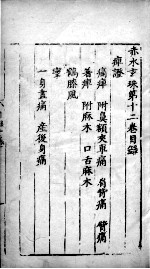 赤水玄珠第十二卷目錄
痺證
痛痺 附臭額夾車痛 肩背痛 臂痛
著痺 附麻木 口舌麻木
鶴膝風
攣
一身盡痛 產後身痛